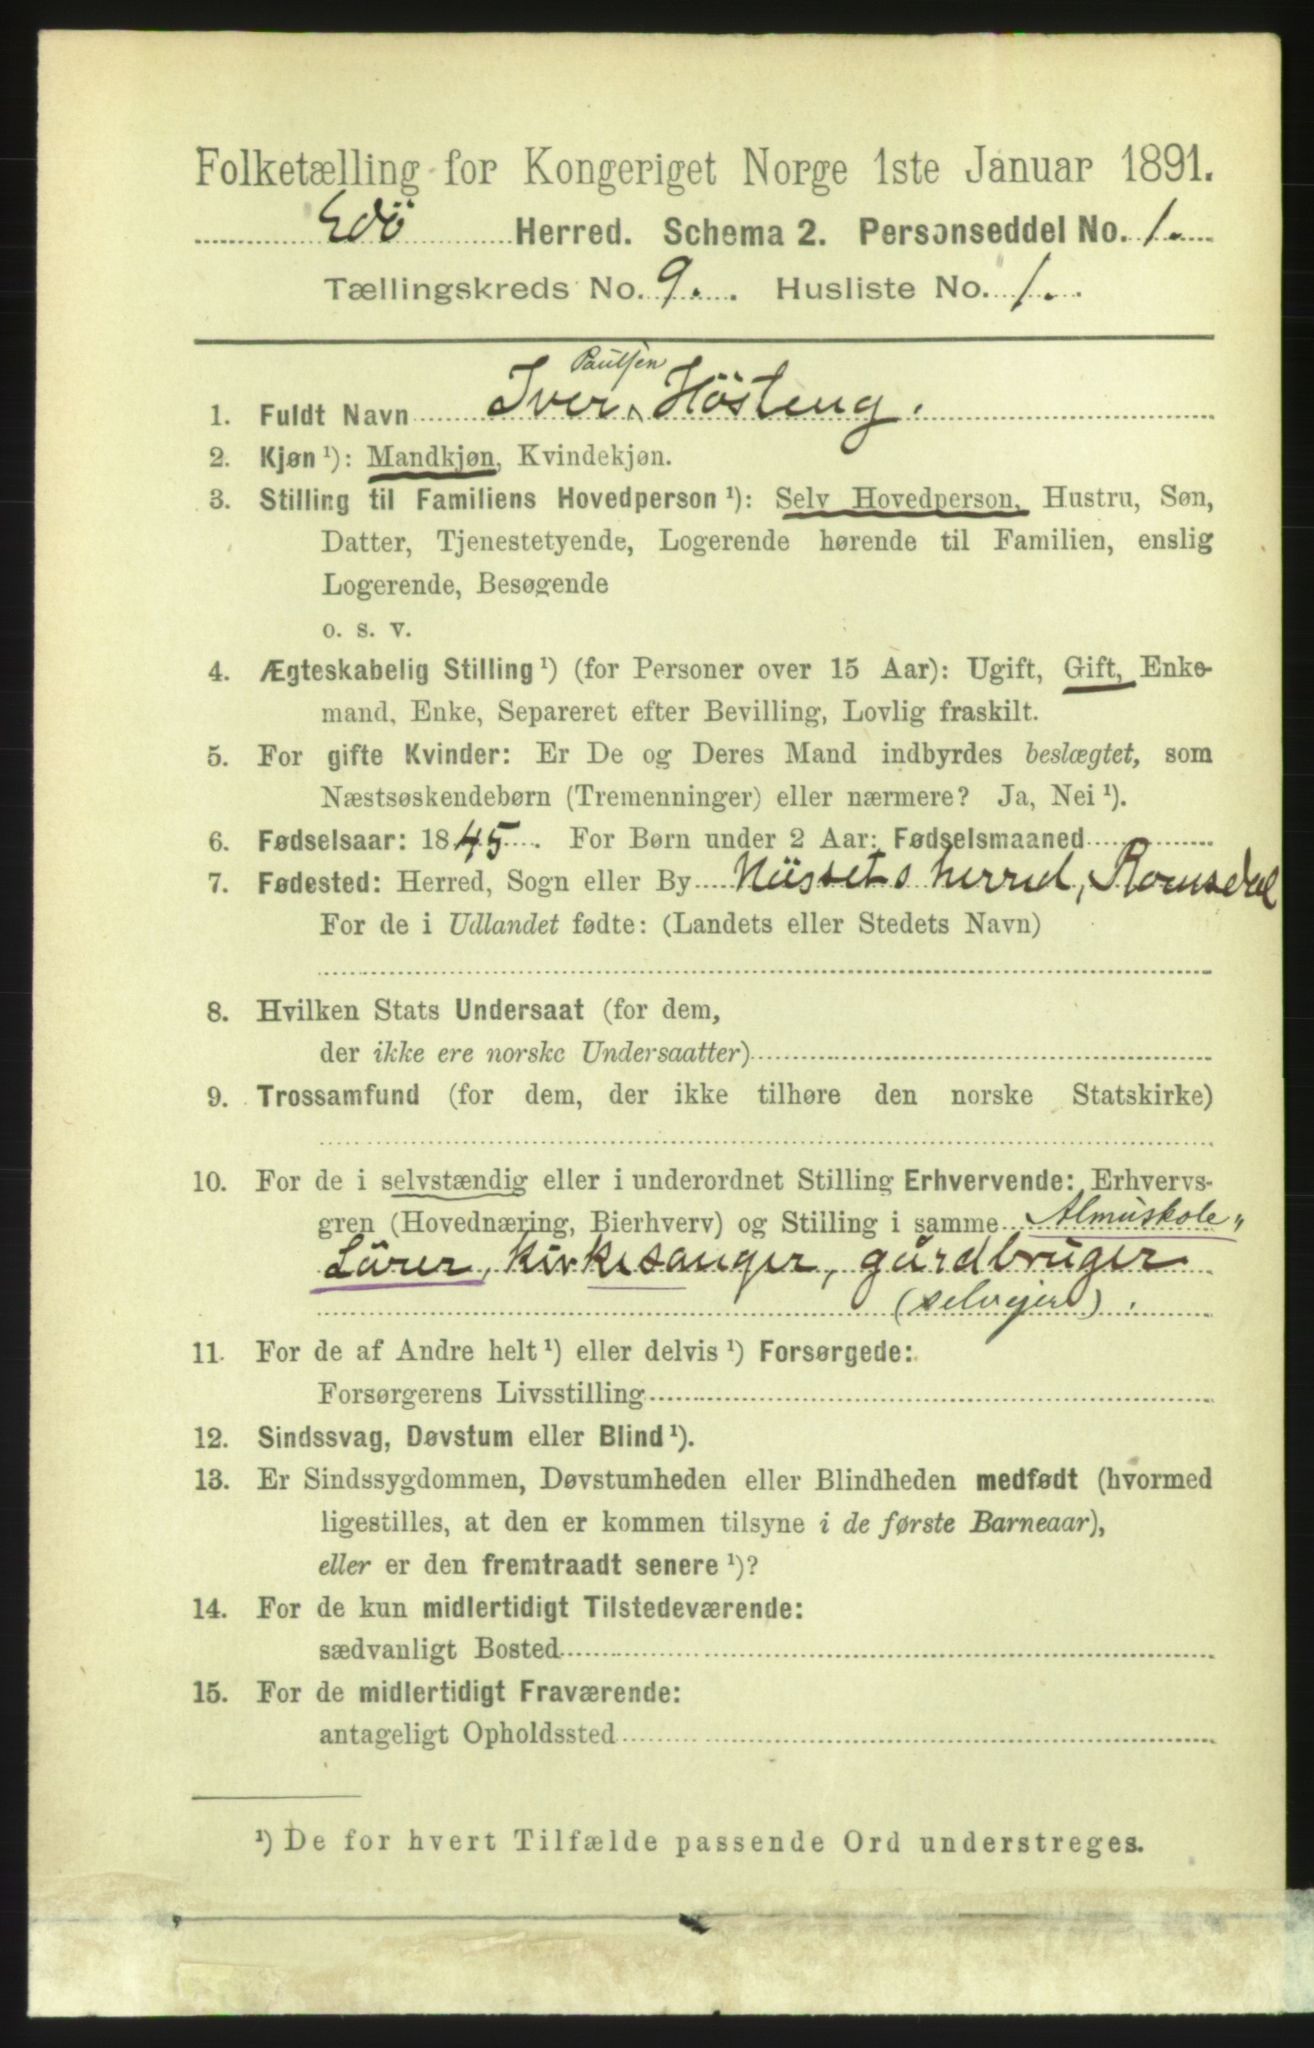 Folketælling for Kongeriget Norge 1ste Januar 1891.
Edö Herred. Schema 2. Personseddel No. 1.
Tællingskreds No. 9. Husliste No. 1.
Paulsen
1. Fuldt Navn Iver Hösteng.
2. Kjøn ¹): Mandkjøn, Kvindekjøn.
3. Stilling til Familiens Hovedperson ¹): Selv Hovedperson, Hustru, Søn,
Datter, Tjenestetyende, Logerende hørende til Familien, enslig
Logerende, Besøgende
o. s. v.
4. Ægteskabelig Stilling ¹) (for Personer over 15 Aar): Ugift, Gift, Enke-
mand, Enke, Separeret efter Bevilling, Lovlig fraskilt.
5. For gifte Kvinder: Er De og Deres Mand indbyrdes beslægtet, som
Næstsøskendebørn (Tremenninger) eller nærmere? Ja, Nei ¹).
6. Fødselsaar: 1845. For Børn under 2 Aar: Fødselsmaaned
7. Fødested: Herred, Sogn eller By Nüssets herred, Romsdal
For de i Udlandet fødte: (Landets eller Stedets Navn)
8. Hvilken Stats Undersaat (for dem,
der ikke ere norske Undersaatter)
9. Trossamfund (for dem, der ikke tilhøre den norske Statskirke)
10. For de i selvstændig eller i underordnet Stilling Erhvervende: Erhvervs-
gren (Hovednæring, Bierhverv) og Stilling i samme Almuskole„
Lärer, kirkesanger, gårdbruger
(selveier).
11. For de af Andre helt ¹) eller delvis ¹) Forsørgede:
Forsørgerens Livsstilling
12. Sindssvag, Døvstum eller Blind ¹).
13. Er Sindssygdommen, Døvstumheden eller Blindheden medfødt (hvormed
ligestilles, at den er kommen tilsyne i de første Barneaar),
eller er den fremtraadt senere ¹)?
14. For de kun midlertidigt Tilstedeværende:
sædvanligt Bosted
15. For de midlertidigt Fraværende:
antageligt Opholdssted
¹) De for hvert Tilfælde passende Ord understreges.